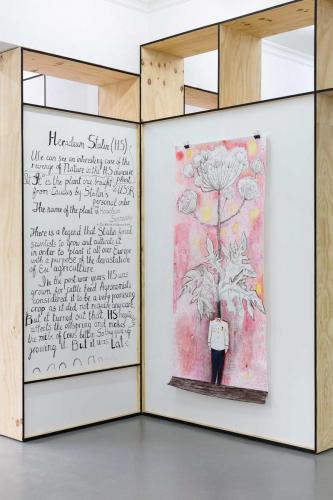 Heracleum Stalin (HS)
We can see an interesting case of the
revenge of Nature in the HS
It is the plant was brought
from Caucas by Stalin's USSR
personal order
The name of the plant is Heracleum
There is a legend that Stalin forced
scientists to grow and cultivate it
in order to plant it all over Europe
with a purpose of the devastation
of Eu agriculture
In the post war years HS was
grown for cattle food. Agronomists
considered it to be a very promising
crop as it did not require any care.
But it turned out that HS
affects the offspring and makes
the milk of cows bitter. So they gave up
growing it. But it was Late